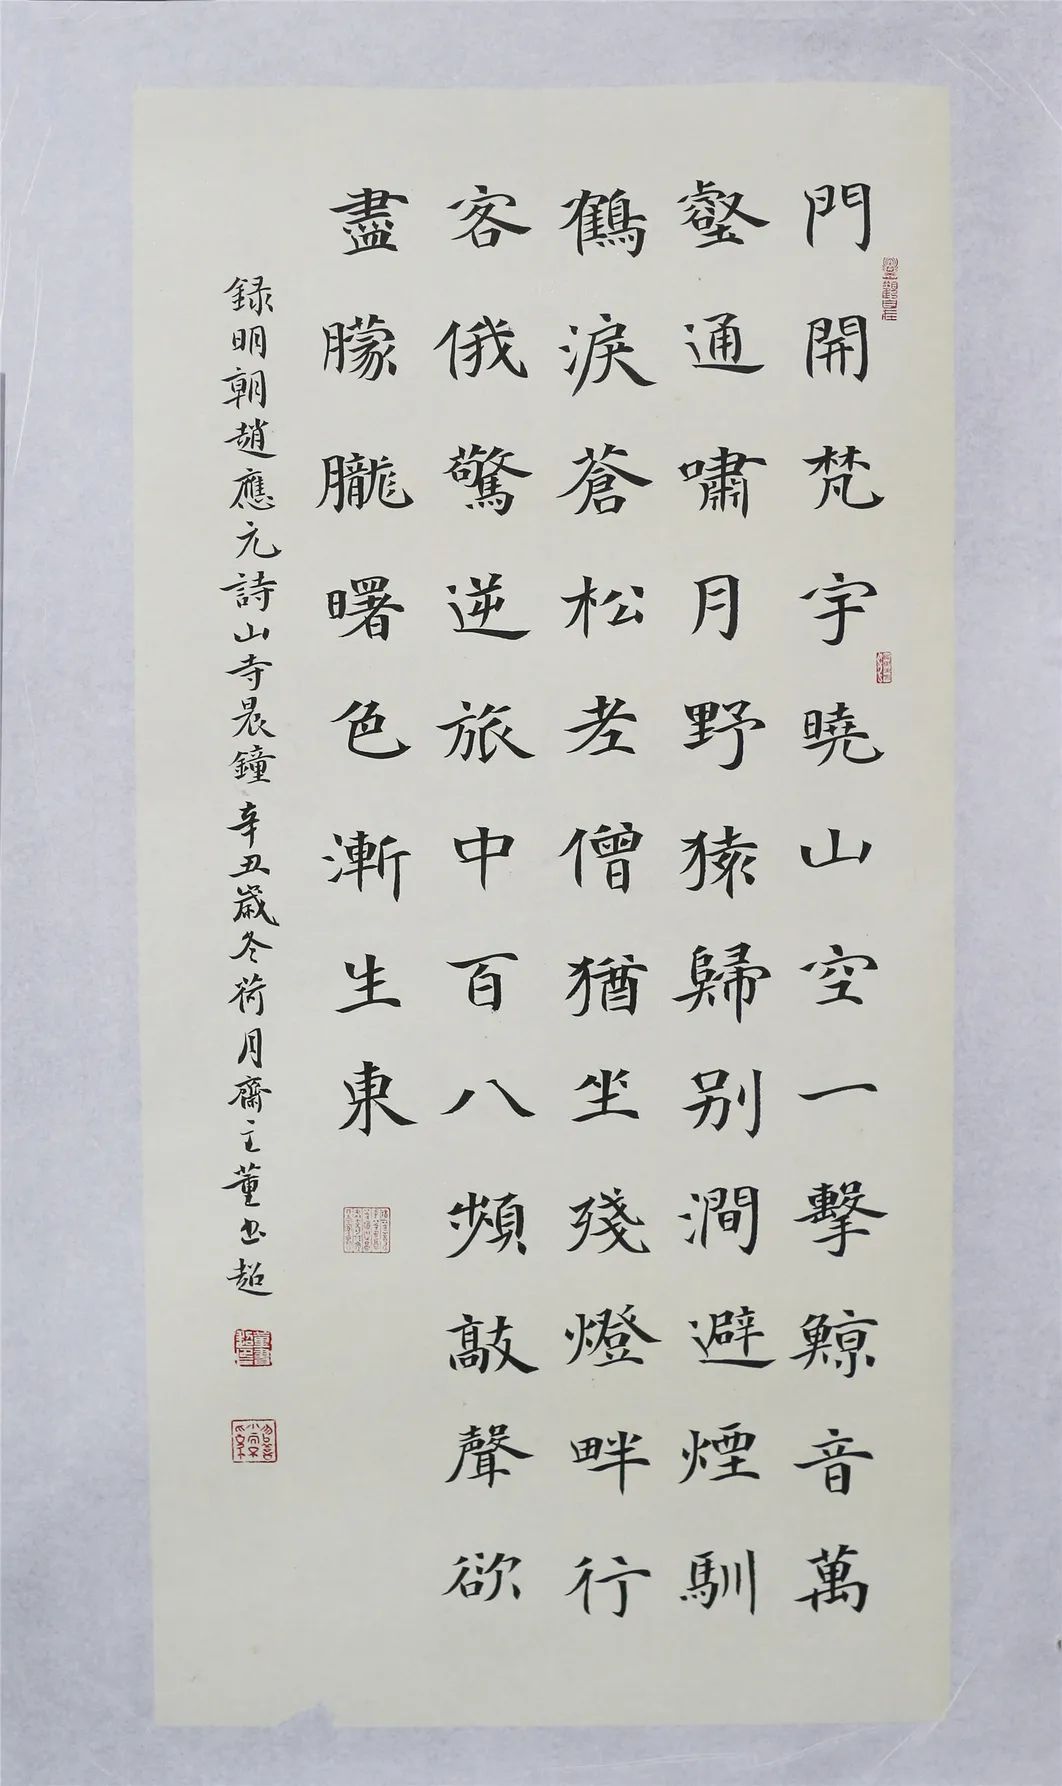 門開梵宇曉山空一擊鯨音萬
壑通嘯月野猿歸别澗避煙馴
鶴淚蒼松老僧猶坐殘燈畔行
客俄驚逆旅中百八頻敲聲欲
盡朦朧曙色漸生東
録明朝趙應元詩山寺晨鐘辛丑歲冬荷月齋主董出超